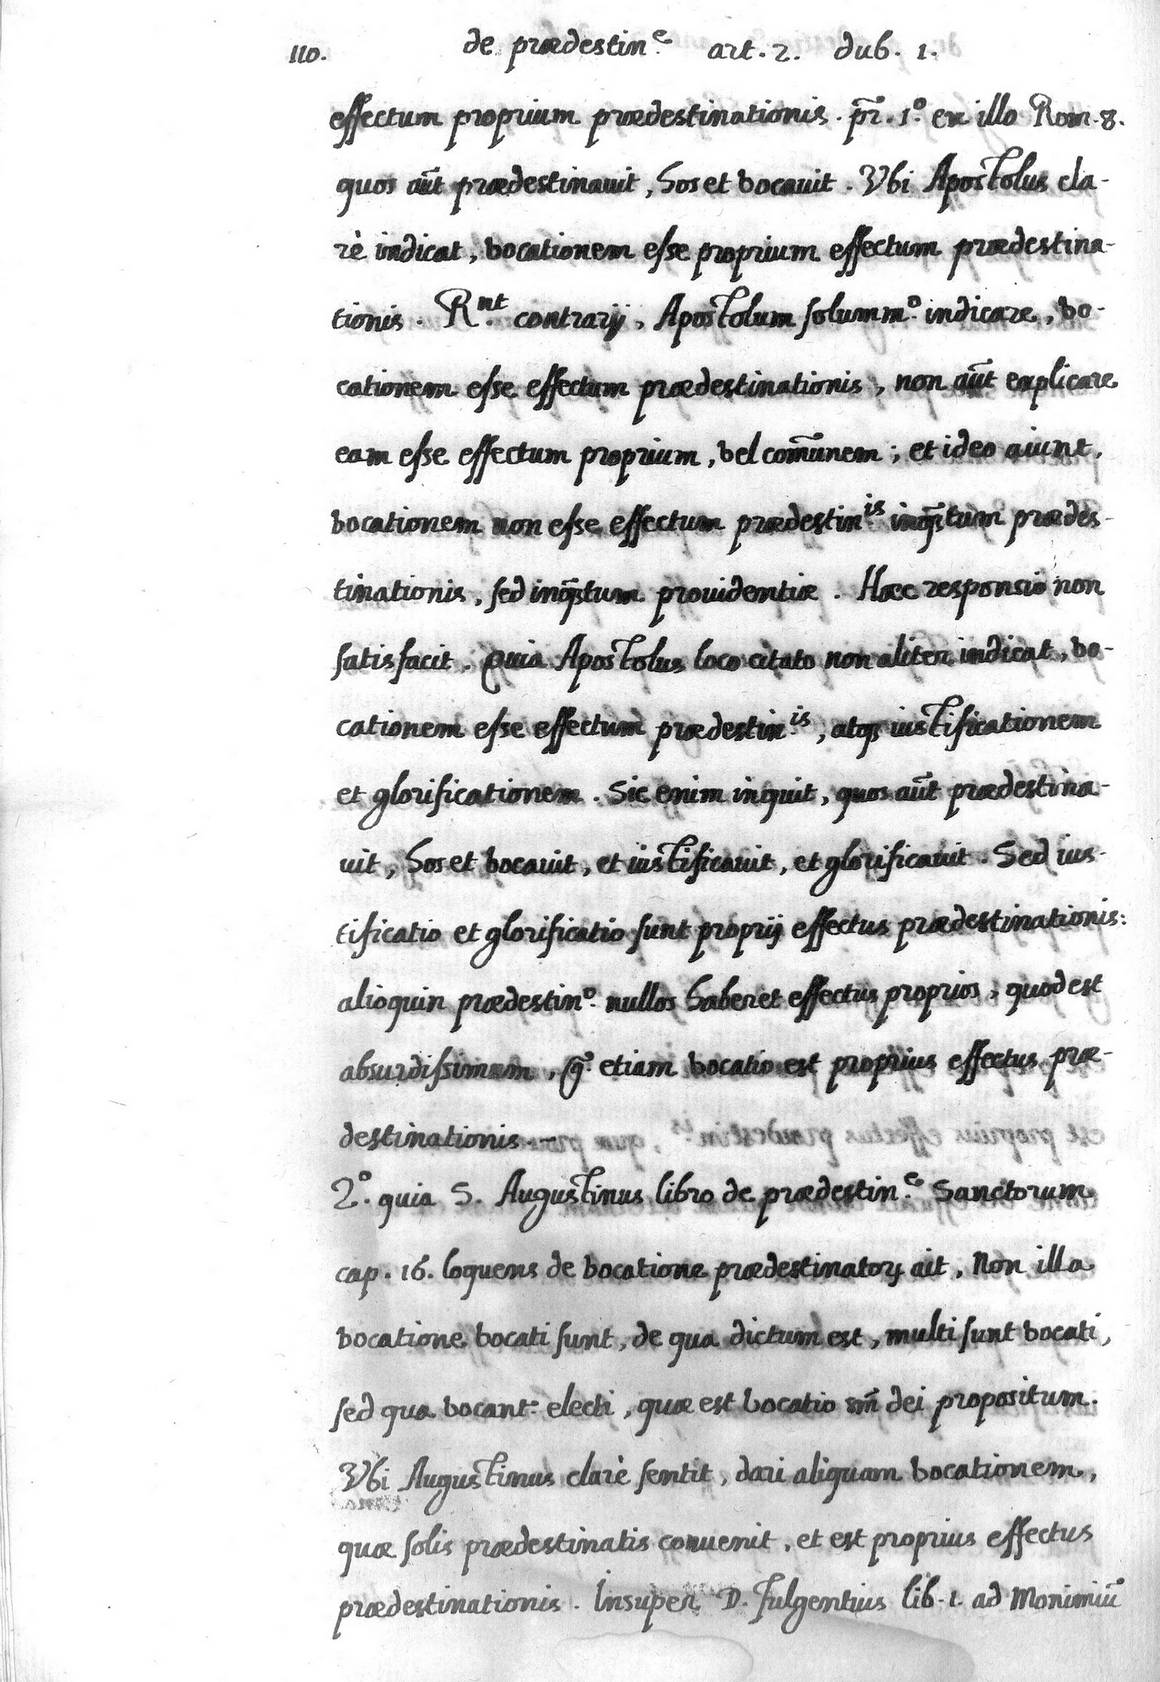 110. de prædestin.e art. 2. dub. 1.
effectum proprium prædestinationis. pr̃. 1.o ex illo Rom. 8.
quos aũt prædestinauit, hos et vocauit. Vbi Apostolus cla-
rè indicat, vocationem esse proprium effectum prædestina-
tionis. R.nt contrarij, Apostolum solumm.o indicare, vo-
cationem esse effectum prædestinationis, non aũt explicare
eam esse effectum proprium, vel com̃unem; et ideo aiunt,
vocationem non esse effectum prædestin.is inq̃tum prædes-
tinationis, sed inq̃tum prouidentiæ. Hæc responsio non
satisfacit. Quia Apostolus loco citato non aliter indicat, vo-
cationem esse effectum prædestin.is, atq; iustificationem
et glorificationem. Sic enim inquit, quos aũt prædestina-
uit, hos et vocauit, et iustificauit, et glorificauit. Sed ius-
tificatio et glorificatio sunt proprij effectus prædestinationis:
alioquin prædestin.o nullos haberet effectus proprios, quod est
absurdissimum, g.o etiam vocatio est proprius effectus præ-
destinationis. -
2.o quia S. Augustinus libro de prædestin.e Sanctorum
cap. 16. loquens de vocatione prædestinatoꝝ ait, Non illa
vocatione vocati sunt, de qua dictum est, multi sunt vocati,
sed qua vocant.r electi, quæ est vocatio sm̃ dei propositum.
Vbi Augustinus clarè sentit, dari aliquam vocationem,
quæ solis prædestinatis conuenit, et est proprius effectus
prædestinationis. Insuper D. fulgentius lib. 1. ad Monimiũ